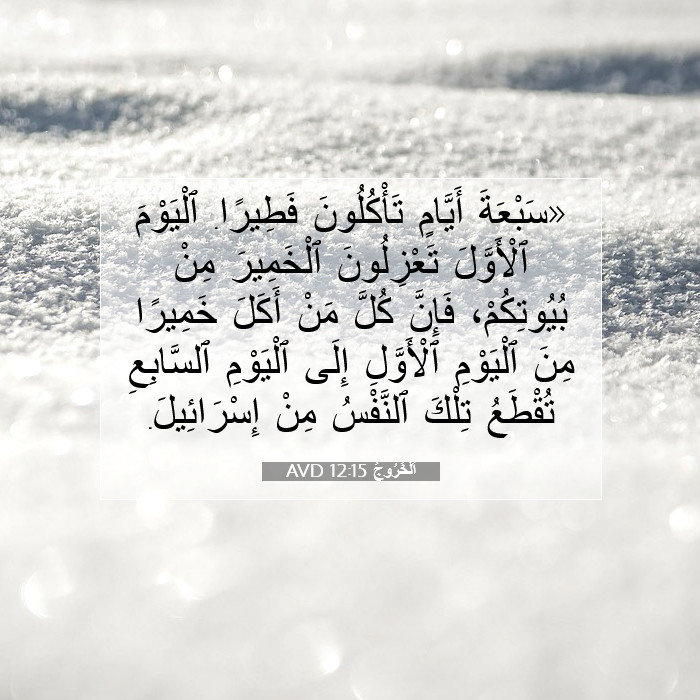 «سَبْعَةَ أَيَّامٍ تَأْكُلُونَ فَطِيرًا. ٱلْيَوْمَ
ٱلْأَوَّلَ تَعْزِلُونَ ٱلْخَمِيرَ مِنْ
بُيُوتِكُمْ، فَإِنَّ كُلَّ مَنْ أَكَلَ خَمِيرًا
مِنَ ٱلْيَوْمِ ٱلْأَوَّلِ إِلَى ٱلْيَوْمِ ٱلسَّابِعِ
تُقْطَعُ تِلْكَ ٱلنَّفْسُ مِنْ إِسْرَائِيلَ.
اَلْخُرُوجُ 12:15 AVD